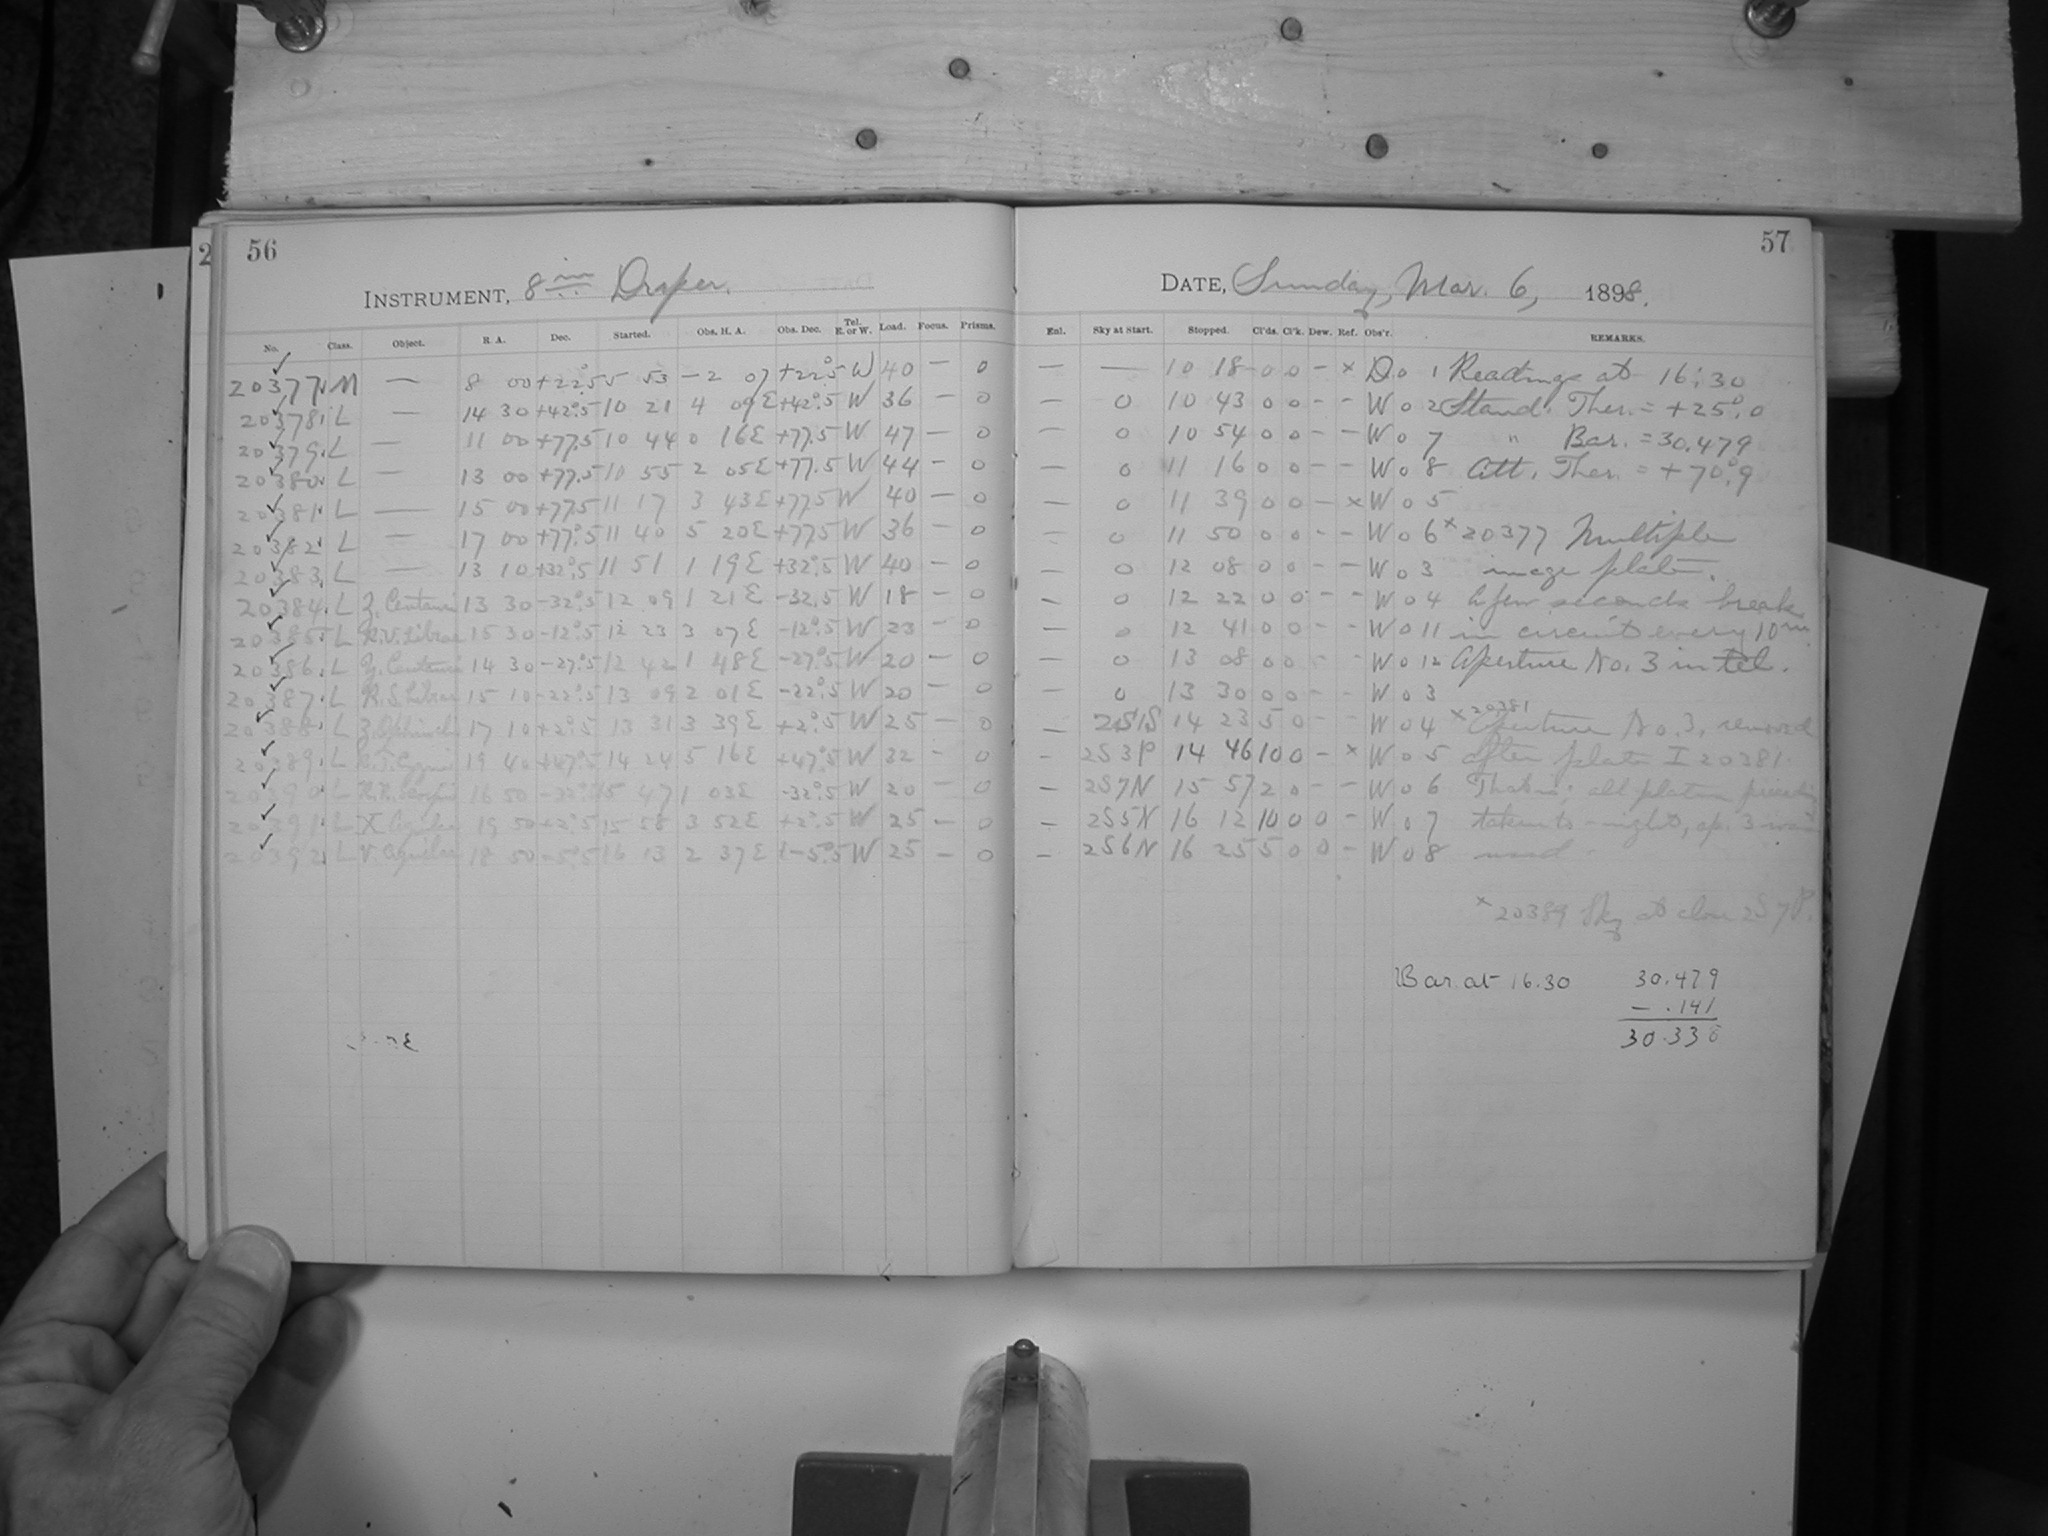 56
INSTRUMENT, 8 in Draper.
No. Class. Object. R. A. Dec. Started. Obs. H. A. Obs. Dec. Tel. E. or W. Load. Focus. Prisms.
20377 M — 8 00 +22°.5 5 53 -2 07 +22°.5 W 40 — 0
20378 L — 14 30 +42°.5 10 21 4 09 E +42°.5 W 36 — 0
20379 L — 11 00 +77.5 10 44 0 16 E +77.5 W 47 — 0
20380 L — 13 00 +77.5 10 55 2 05 E +77.5 W 44 — 0
20381 L — 15 00 +77.5 11 17 3 43 E +77.5 W 40 — 0
20382 L — 17 00 +77°.5 11 40 5 20 E +77.5 W 36 — 0
20383 L — 13 10 +32°.5 11 51 1 19 E +32°.5 W 40 — 0
20384 L Z. Centauri 13 30 -32°.5 12 09 1 21 E -32.5 W 18 — 0
20385 L R.V. Librae 15 30 -12°.5 12 23 3 07 E -12°.5 W 23 — 0
20386 L Centauri 14 30 -27°.5 12 42 1 48 E -27°.5 W 20 — 0
20387 L R.S. Librae 15 10 -22°.5 13 09 2 01 E -22°.5 W 20 — 0
20388 L Z. Ophiuchi 17 10 +2°.5 13 31 3 39 E +2°.5 W 25 — 0
20389 L Cygni 19 40 +47°.5 14 24 5 16 E +47°.5 W 32 — 0
20390 L Scorpii 16 50 -32°.5 15 47 1 03 E -32°.5 W 20 — 0
20391 L X Aquilae 19 50 +2°.5 15 58 3 52 E +2°.5 W 25 — 0
20392 L V. Aquilae 18 50 -5°.5 16 13 2 37 E -5°.5 W 25 — 0
57
DATE, Sunday, Mar. 6, 1898.
Enl. Sky at Start. Stopped. Cl'ds. Cl'k. Dew. Ref. Obs'r. REMARKS.
— — 10 18 0 0 - x D 0 1 Readings at 16:30
— 0 10 43 0 0 - - W 0 2 Stand. Ther. = +25°.0
— 0 10 54 0 0 - - W 0 7 " Bar. = 30.479
— 0 11 16 0 0 - - W 0 8 Att. Ther. = +70°.9
— 0 11 39 0 0 - x W 0 5
— 0 11 50 0 0 - - W 0 6 x 20377 Multiple
— 0 12 08 0 0 - - W 0 3 image plate.
— 0 12 22 0 0 - - W 0 4 A few seconds break
— 0 12 41 0 0 - - W 0 11 in circuit every 10m
— 0 13 08 0 0 - - W 0 12 Aperture No. 3 in tel.
— 0 13 30 0 0 - - W 0 3
— 2S1S 14 23 5 0 - - W 0 4 x 20381 Aperture No. 3, removed
— 2S3P 14 46 10 0 - x W 0 5 after plate I 20381.
— 2S7N 15 57 2 0 - - W 0 6 That is; all plates preceding
— 2S5N 16 12 10 0 0 - W 0 7 taken to-night, ap. 3 was
— 2S6N 16 25 5 0 0 - W 0 8 used.
x 20389 Sky at close 2S7P.
Bar. at 16.30 30.479
- .141
30.338